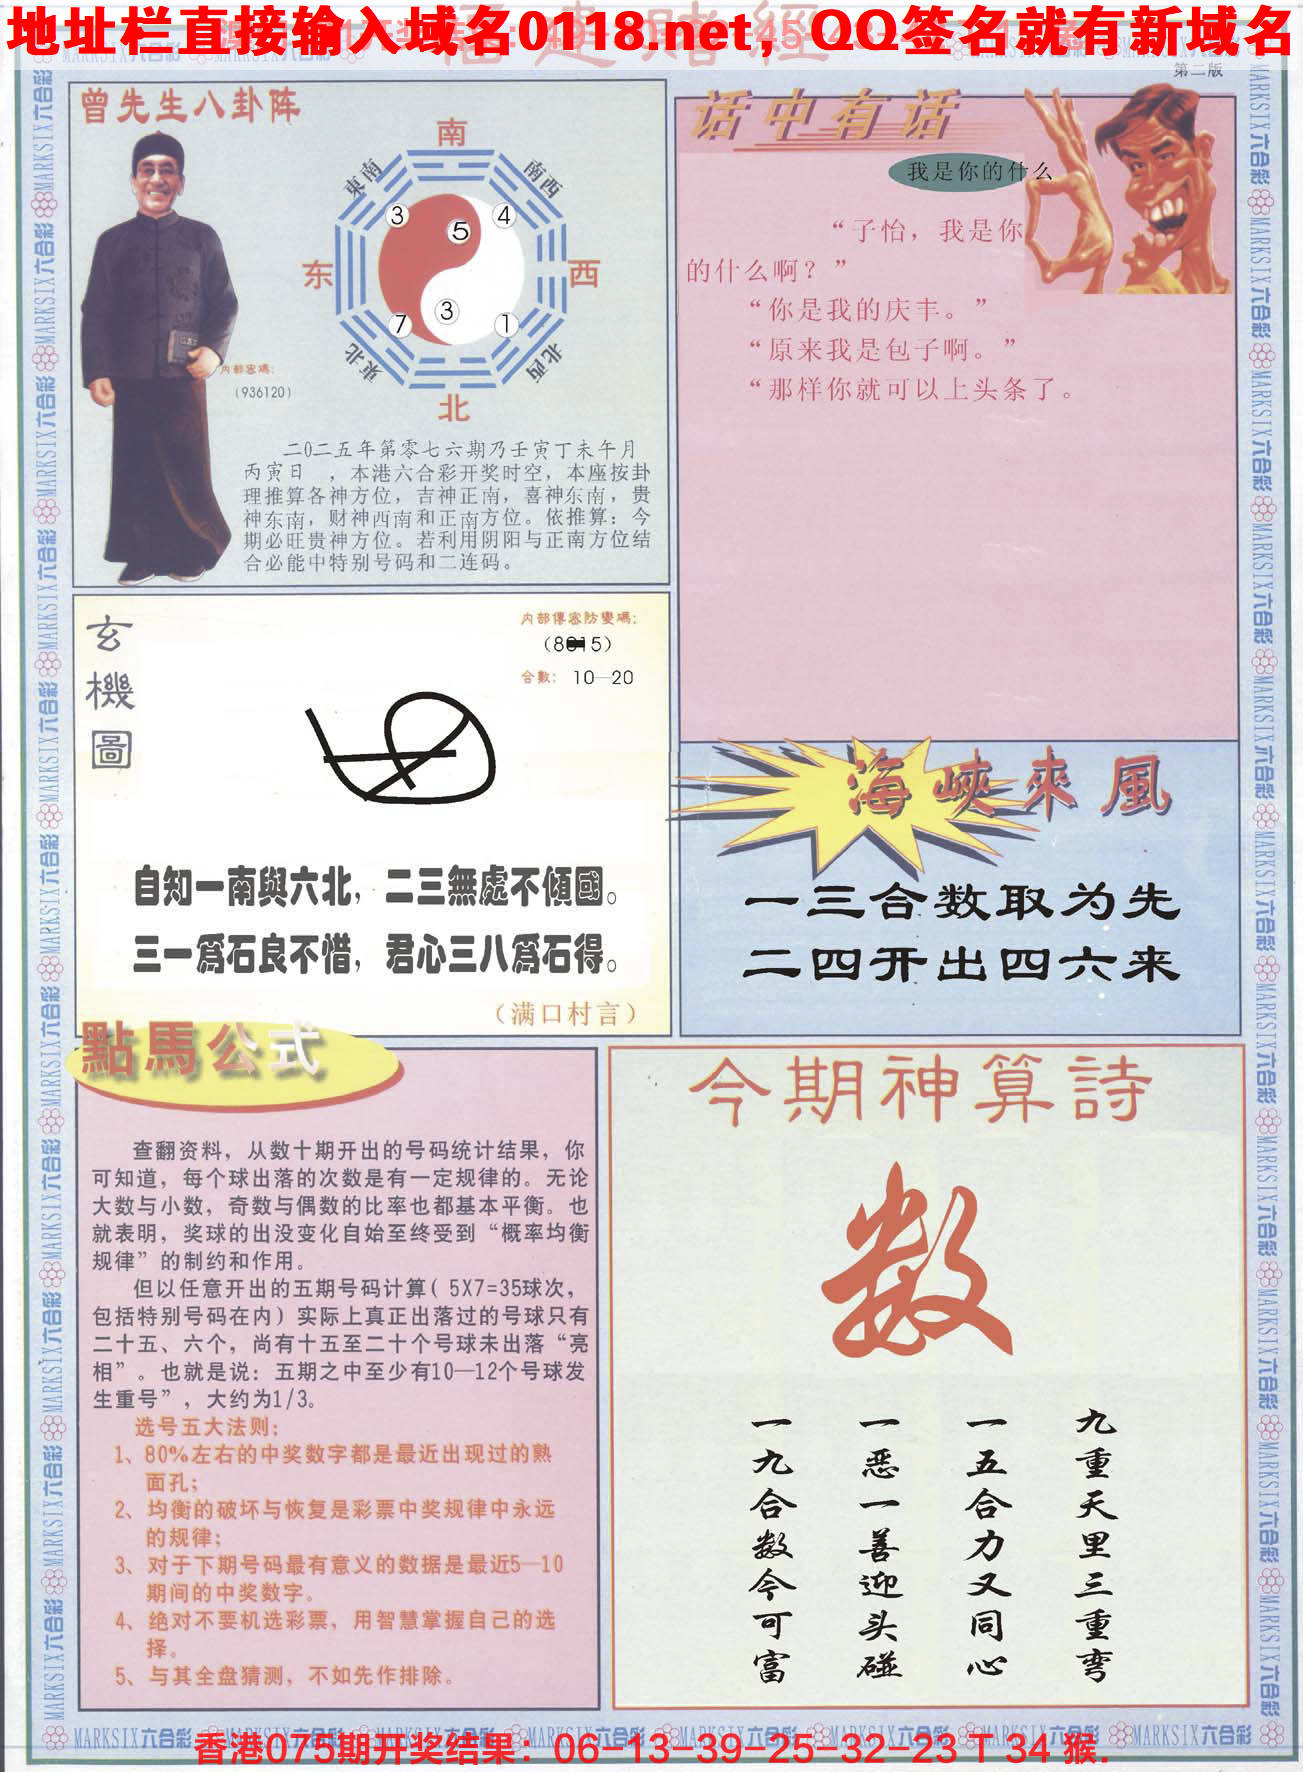 地址栏直接输入域名0118.net，QQ签名就有新域名
福建赌经
第二版
曾先生八卦阵
南
東南
南西
3
5
4
东
西
7
3
1
東北
北西
北
内部密碼：
（936120）
二0二五年第零七六期乃壬寅丁未午月
丙寅日 ，本港六合彩开奖时空，本座按卦
理推算各神方位，吉神正南，喜神东南，贵
神东南，财神西南和正南方位。依推算：今
期必旺贵神方位。若利用阴阳与正南方位结
合必能中特别号码和二连码。
话中有话
我是你的什么
“子怡，我是你
的什么啊？”
“你是我的庆丰。”
“原来我是包子啊。”
“那样你就可以上头条了。
玄機圖
内部傳密防變碼：
合數： 10—20
自知一南與六北，二三無處不傾國。
三一爲石良不惜，君心三八爲石得。
（满口村言）
海峽來風
一三合数取为先
二四开出四六来
點馬公式
查翻资料，从数十期开出的号码统计结果，你
可知道，每个球出落的次数是有一定规律的。无论
大数与小数，奇数与偶数的比率也都基本平衡。也
就表明，奖球的出没变化自始至终受到“概率均衡
规律”的制约和作用。
但以任意开出的五期号码计算（5X7=35球次，
包括特别号码在内）实际上真正出落过的号球只有
二十五、六个，尚有十五至二十个号球未出落“亮
相”。也就是说：五期之中至少有10—12个号球发
生重号”，大约为1/3。
选号五大法则：
1、80%左右的中奖数字都是最近出现过的熟
面孔；
2、均衡的破坏与恢复是彩票中奖规律中永远
的规律；
3、对于下期号码最有意义的数据是最近5—10
期间的中奖数字。
4、绝对不要机选彩票，用智慧掌握自己的选
择。
5、与其全盘猜测，不如先作排除。
今期神算詩
数
九重天里三重弯
一五合力又同心
一恶一善迎头碰
一九合数今可富
MARKSIX六合彩
香港075期开奖结果：06-13-39-25-32-23 T 34 猴.